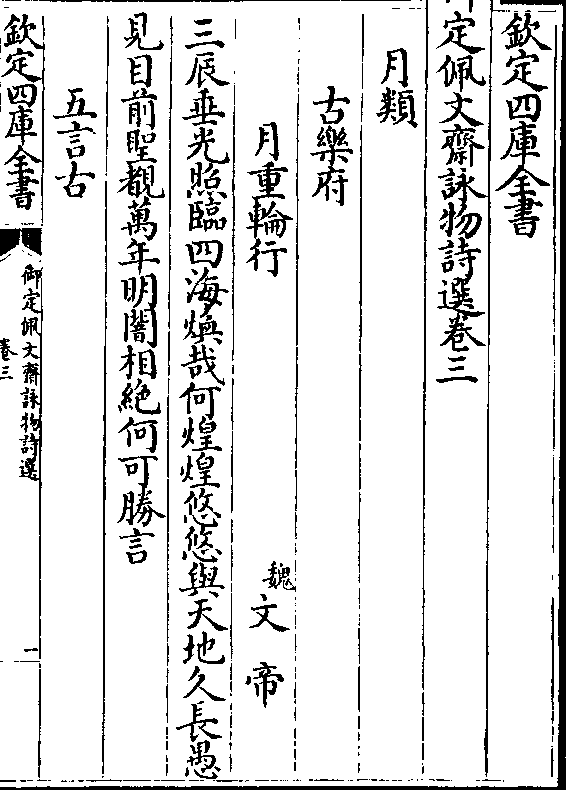 欽定四庫全書
御定佩文齋詠物詩選卷三
月類
古樂府
月重輪行 魏文帝
三辰垂光照臨四海煥哉何煌煌悠悠與天地久長愚
見目前聖覩萬年明闇相絶何可勝言
五言古
欽定四庫全書
御定佩文齋詠物詩選
卷三
一